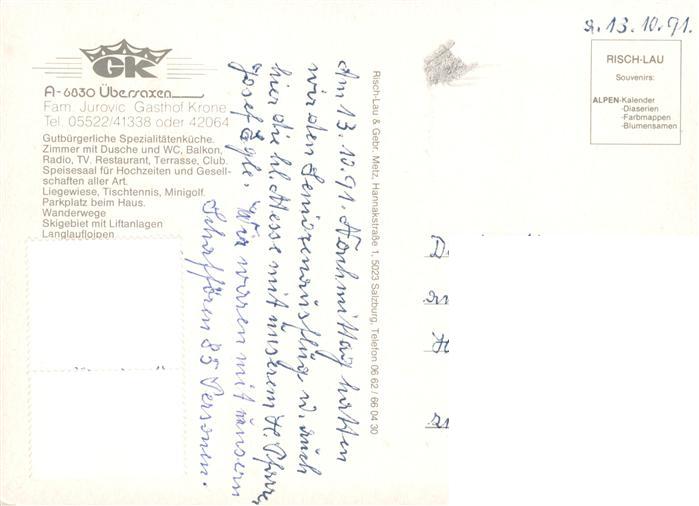 a. 13.10.91.
GK
A-6830 Übersaxen
Fam. Jurovic Gasthof Krone
Tel. 05522/41338 oder 42064
Gutbürgerliche Spezialitätenküche.
Zimmer mit Dusche und WC, Balkon,
Radio, TV. Restaurant, Terrasse, Club.
Speisesaal für Hochzeiten und Gesell-
schaften aller Art.
Liegewiese, Tischtennis, Minigolf.
Parkplatz beim Haus.
Wanderwege
Skigebiet mit Liftanlagen
Langlaufloipen
Am 13.10.91. Nachmittag hatten
wir den Seniorenausflug u. auch
hier die hl. Messe mit unserem H. Pfarrer,
Josef Egle. Wir waren mit unsern
85 Personen.
Risch-Lau & Gebr. Metz, Hannakstraße 1, 5023 Salzburg, Telefon 06 62 / 66 04 30
RISCH-LAU
Souvenirs:
ALPEN-Kalender
-Diaserien
-Farbmappen
-Blumensamen